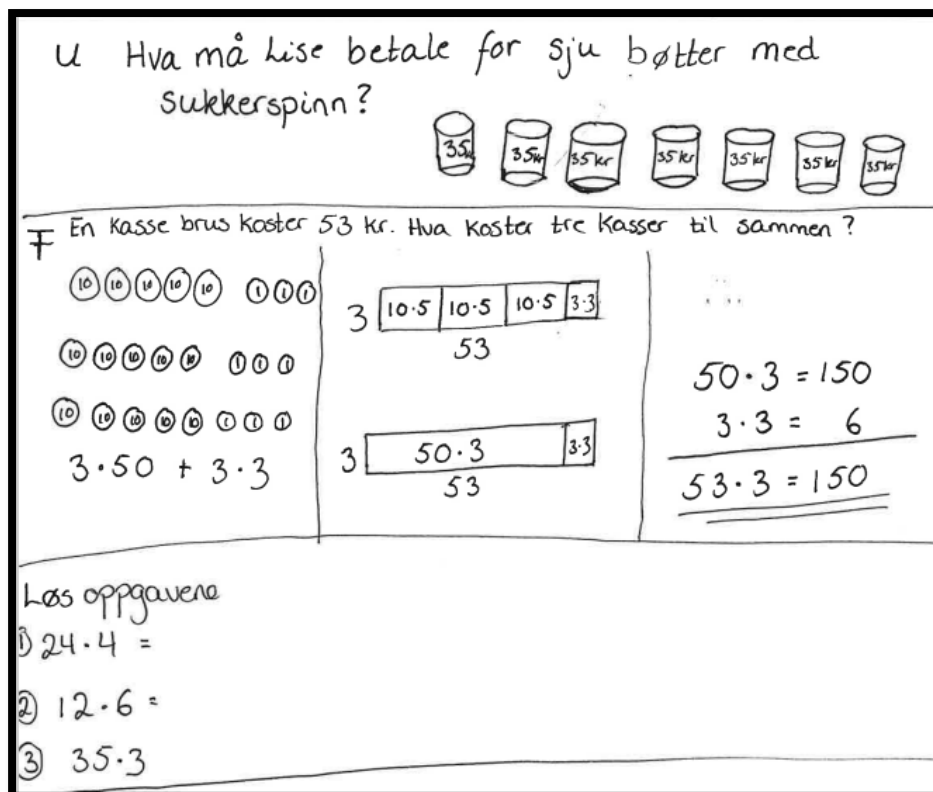 U Hva må Lise betale for sju bøtter med
sukkerspinn?
35kr 35kr 35kr 35kr 35kr 35kr 35kr
F En kasse brus koster 53 kr. Hva koster tre kasser til sammen?
10 10 10 10 10 1 1 1
10 10 10 10 10 1 1 1
10 10 10 10 10 1 1 1
3·50 + 3·3
3 10·5 10·5 10·5 3·3
53
3 50·3 3·3
53
50·3 = 150
3·3 = 6
53·3 = 150
Løs oppgavene
① 24·4 =
② 12·6 =
③ 35·3